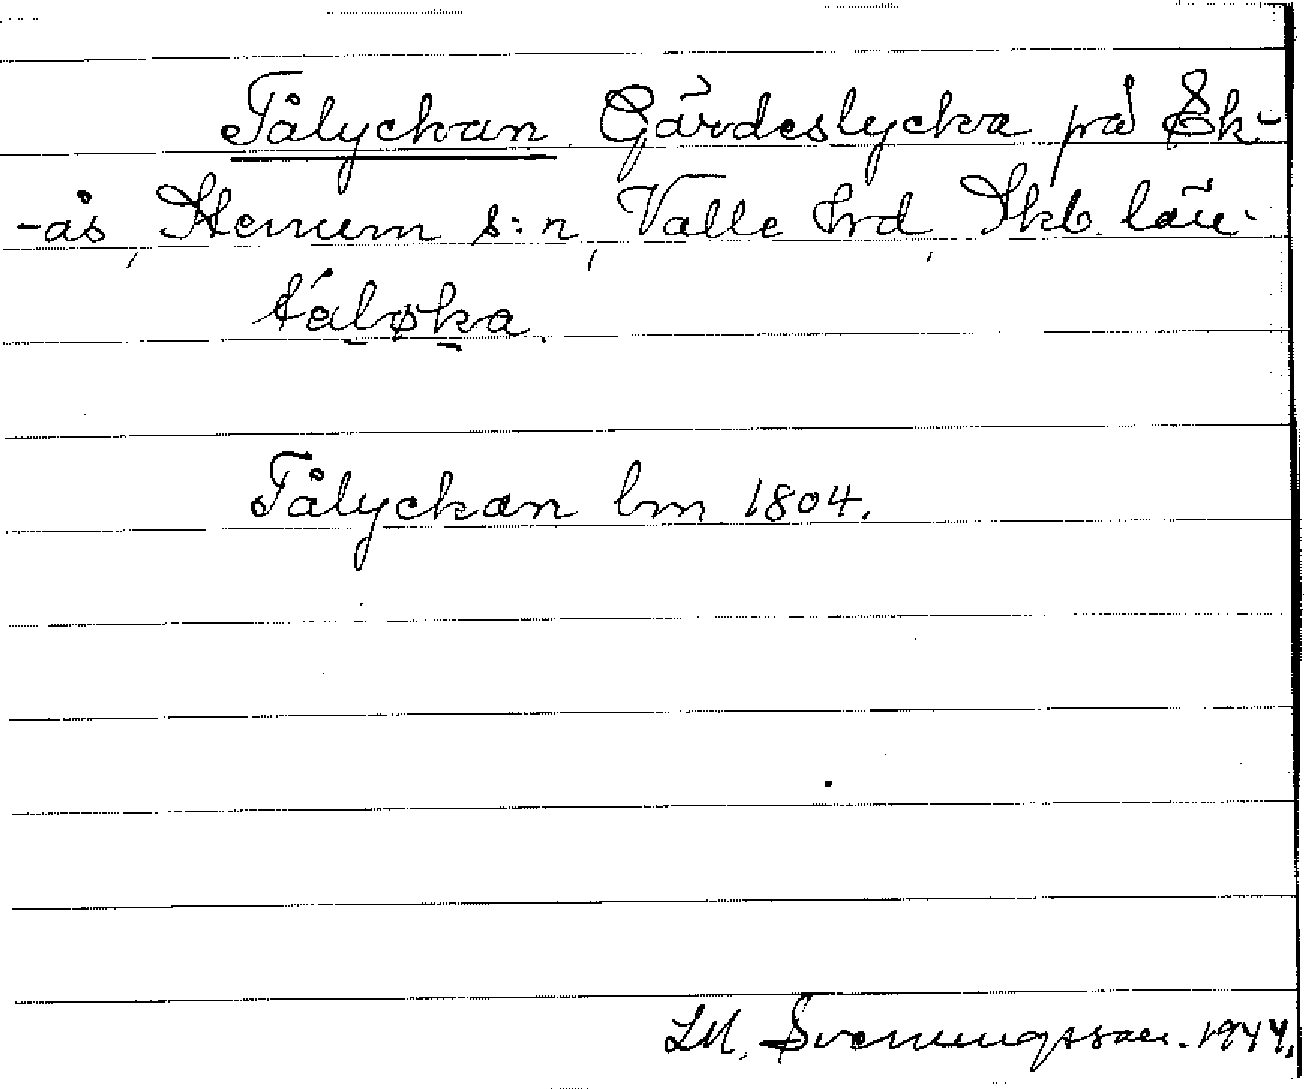 Tålyckan Gärdeslycka på Ek-
-ås, Stenum s:n, Valle hrd, Skb. län.
táløka.
Tålyckan lm 1804.
LM. Svenungsson. 1944.